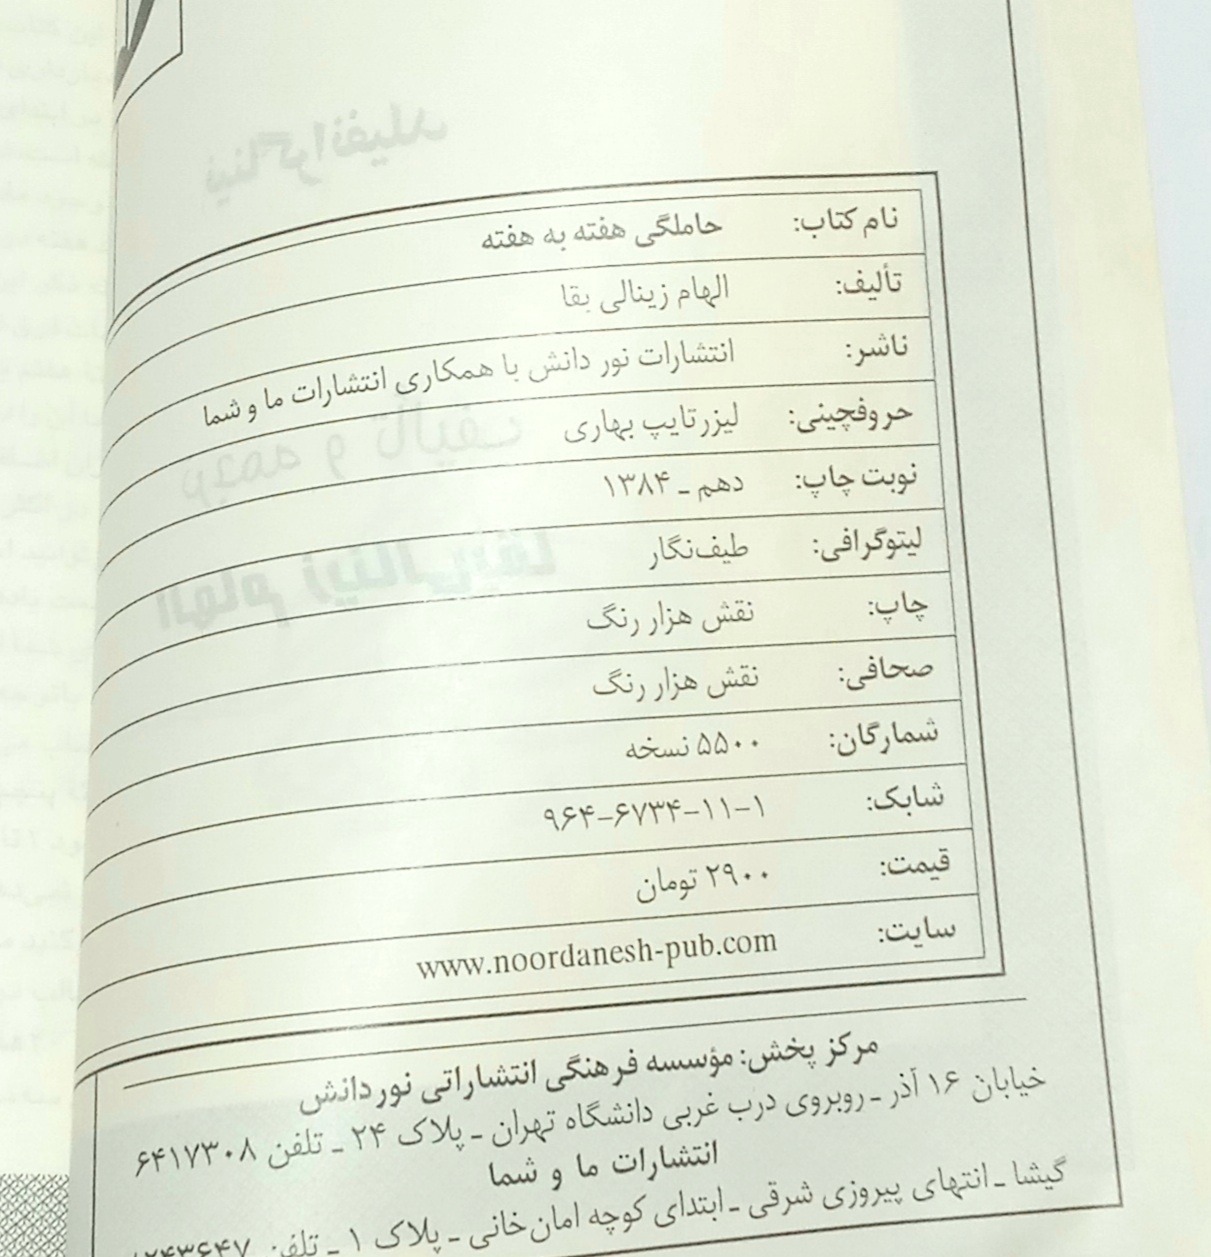 نام کتاب: حاملگی هفته به هفته
تألیف: الهام زینالی بقا
ناشر: انتشارات نور دانش با همکاری انتشارات ما و شما
حروفچینی: لیزرتایپ بهاری
نوبت چاپ: دهم ـ ۱۳۸۴
لیتوگرافی: طیف‌نگار
چاپ: نقش هزار رنگ
صحافی: نقش هزار رنگ
شمارگان: ۵۵۰۰ نسخه
شابک: ۹۶۴-۶۷۳۴-۱۱-۱
قیمت: ۲۹۰۰ تومان
سایت: www.noordanesh-pub.com
مرکز پخش: مؤسسه فرهنگی انتشاراتی نوردانش
خیابان ۱۶ آذر ـ روبروی درب غربی دانشگاه تهران ـ پلاک ۲۴ ـ تلفن ۶۴۱۷۳۰۸
انتشارات ما و شما
گیشا ـ انتهای پیروزی شرقی ـ ابتدای کوچه امان‌خانی ـ پلاک ۱ ـ تلفن